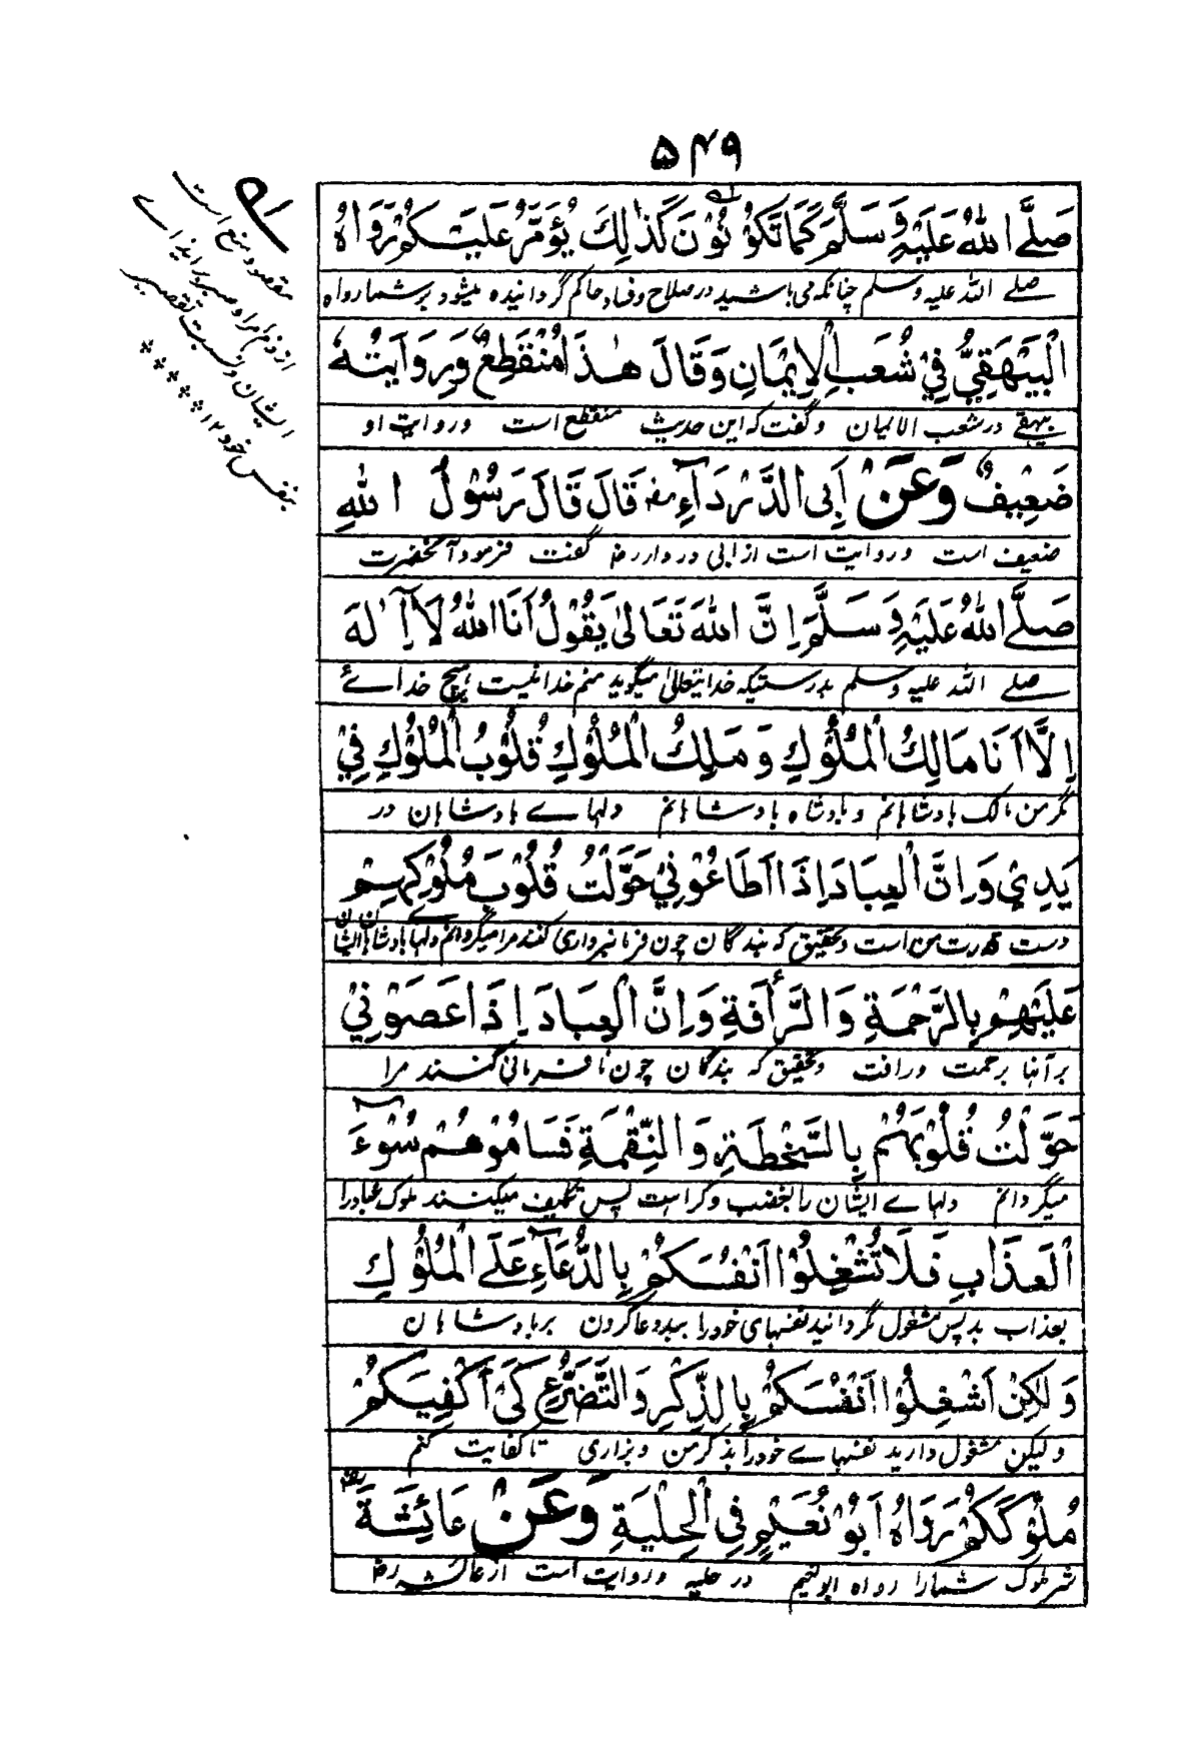 ۵۴۹
صَلَّے اللهُ عَلَيْهِ وَسَلَّمَ كَمَا تَكُوْنُوْنَ كَذٰلِكَ يُؤَمَّرُ عَلَيْكُمْ رَوَاهُ
صلے اللہ علیہ وسلم چنانکہ می باشید در صلاح وفساد حاکم گردانیدہ میشود بر شما رواہ
الْبَيْهَقِيُّ فِيْ شُعَبِ الْاِيْمَانِ وَقَالَ هٰذَا مُنْقَطِعٌ وَرِوَايَتُهٗ
بیہقے در شعب الایمان وگفت کہ این حدیث منقطع است وروایت او
ضَعِيْفٌ وَعَنْ اَبِى الدَّرْدَآءِ رض قَالَ قَالَ رَسُوْلُ اللهِ
ضعیف است وروایت است از ابی دردا رض گفت فرمود آنحضرت
صَلَّے اللهُ عَلَيْهِ وَسَلَّمَ اِنَّ اللهَ تَعَالىٰ يَقُوْلُ اَنَا اللهُ لَآ اِلٰهَ
صلے اللہ علیہ وسلم بدرستیکہ خدایتعالیٰ میگوید منم خدا نیست ہیچ خدائے
اِلَّا اَنَا مَالِكُ الْمُلُوْكِ وَمَلِكُ الْمُلُوْكِ قُلُوْبُ الْمُلُوْكِ فِيْ
مگر من مالک بادشاہانم وبادشاہ بادشاہانم دلہاے بادشاہان در
يَدِيْ وَاِنَّ الْعِبَادَ اِذَا اَطَاعُوْنِيْ حَوَّلْتُ قُلُوْبَ مُلُوْكِهِمْ
دست قدرت من است وتحقیق کہ بندگان چون فرمانبرداری کنند مرا میگردانم دلہاے بادشاہان ایشان
عَلَيْهِمْ بِالرَّحْمَةِ وَالرَّأْفَةِ وَاِنَّ الْعِبَادَ اِذَا عَصَوْنِيْ
بر آنہا برحمت ورافت وتحقیق کہ بندگان چون نافرمانی کنند مرا
حَوَّلْتُ قُلُوْبَهُمْ بِالسَّخْطَةِ وَالنِّقْمَةِ فَسَامُوْهُمْ سُوْٓءَ
میگردانم دلہاے ایشان را بغضب وکراہت پس تکلیف میکنند ملوک عباد را
الْعَذَابِ فَلَا تُشْغِلُوْا اَنْفُسَكُمْ بِالدُّعَآءِ عَلَے الْمُلُوْكِ
بعذاب بد پس مشغول مگردانید نفسہای خود را ببد دعا کردن بر بادشاہان
وَلٰكِنْ اَشْغِلُوْا اَنْفُسَكُمْ بِالذِّكْرِ وَالتَّضَرُّعِ كَىْ اَكْفِيَكُمْ
ولیکن مشغول دارید نفسہاے خود را بذکر من وبزاری تا کفایت کنم
مُلُوْكَكُمْ رَوَاهُ اَبُوْ نُعَيْمٍ فِى الْحِلْيَةِ وَعَنْ عَائِشَةَ رض
شر ملوک شمارا رواہ ابونعیم در حلیہ وروایت است از عائشہ رض
مقصود منع است
از ذم امرا وصبر بر ایذاے
ایشان ونسبت تقصیر
بنفس خود ۱۲